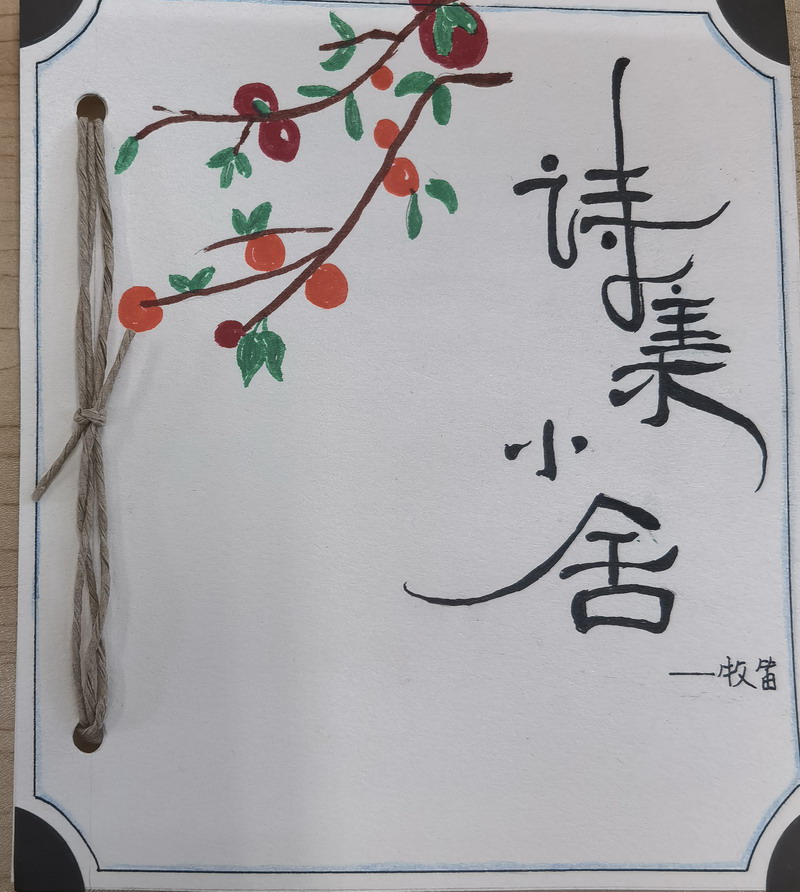 诗集
小舍
—牧笛